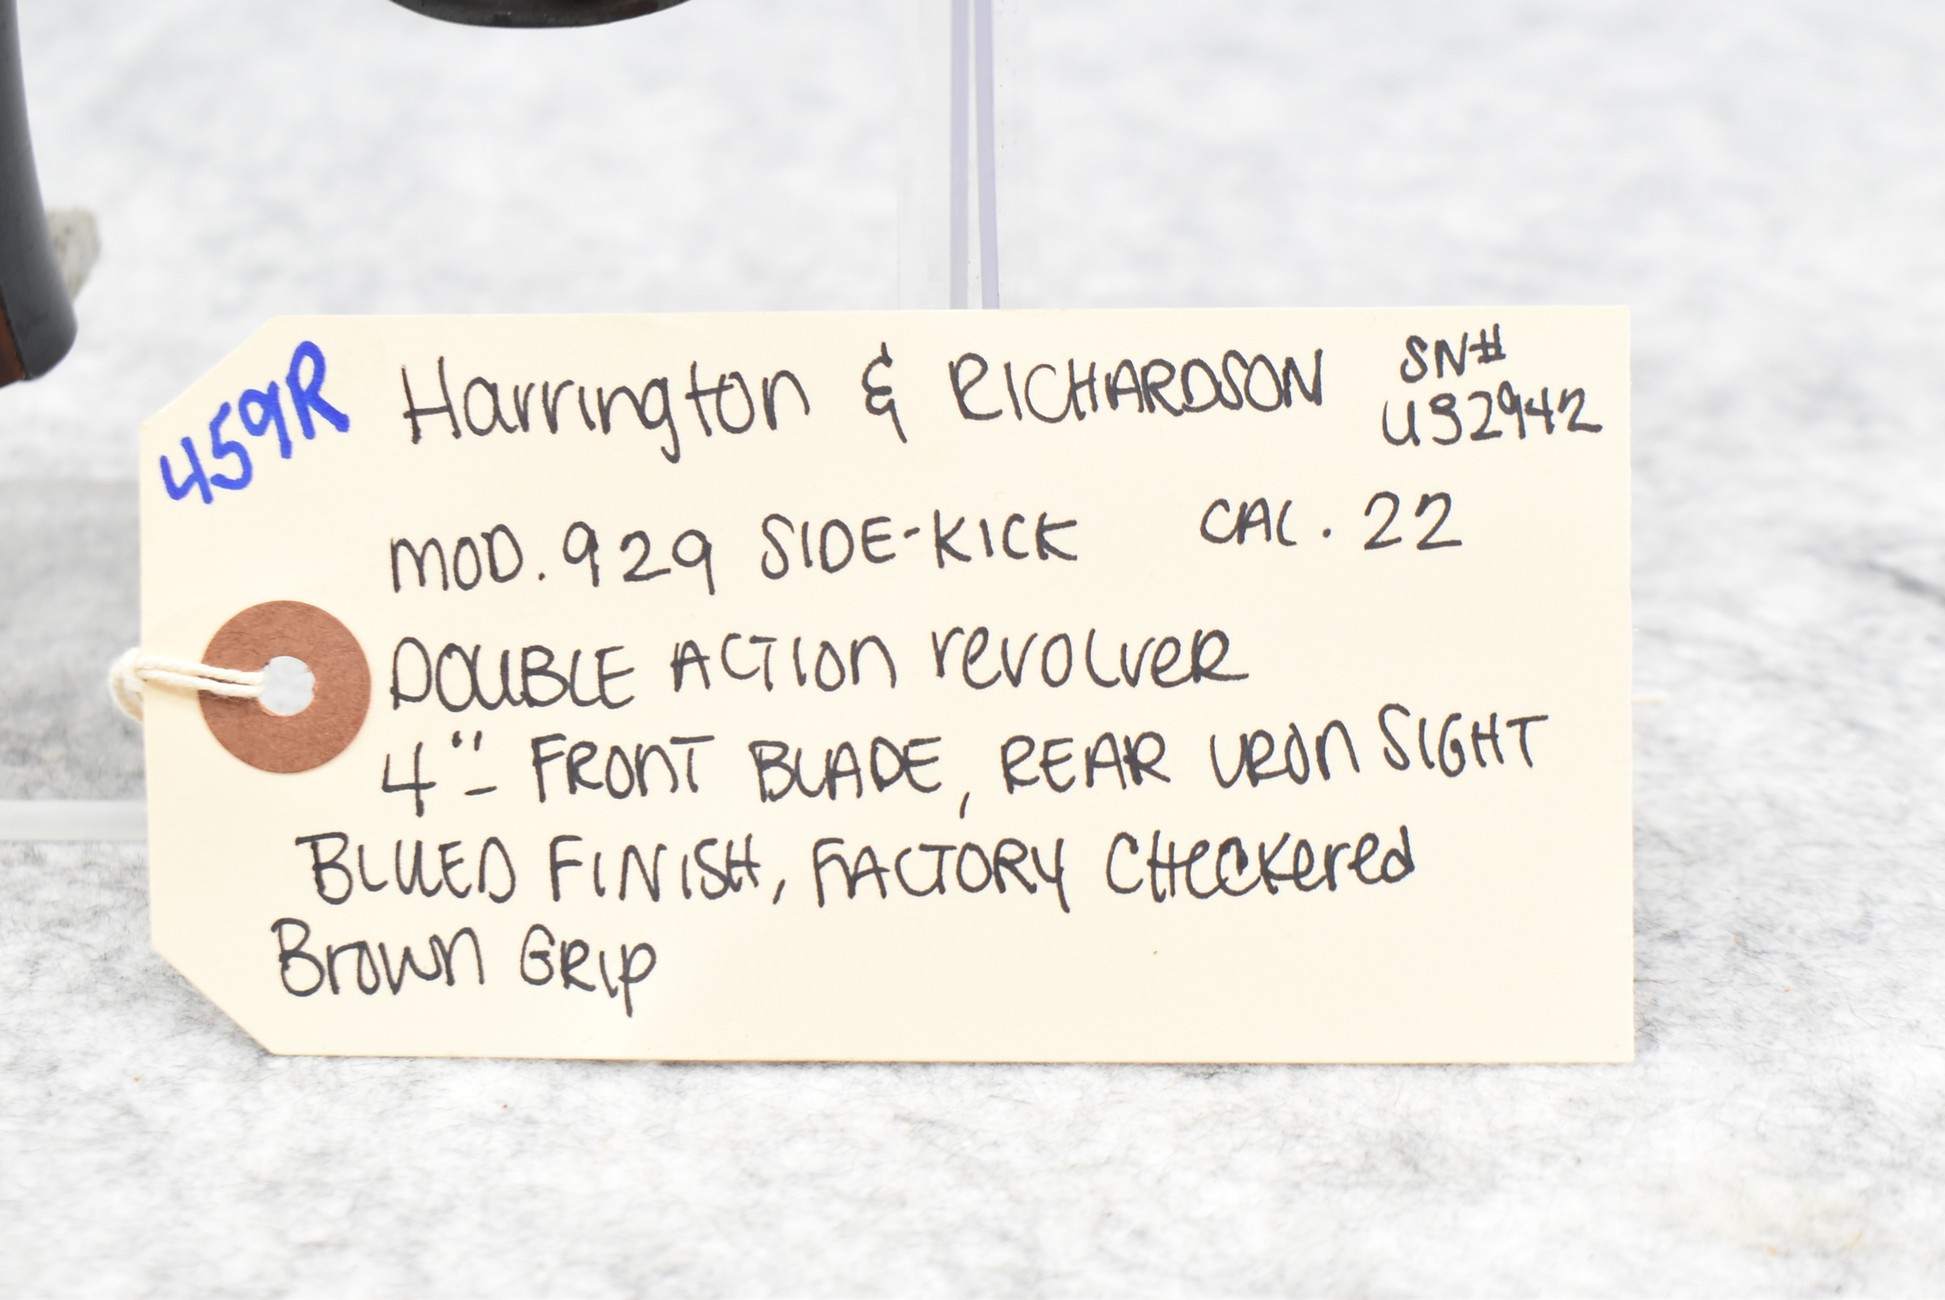 459R
Harrington & RICHARDSON
SN#
U32942
MOD. 929 SIDE-KICK CAL. 22
DOUBLE ACTION revolver
4"- FRONT BLADE, REAR IRON SIGHT
BLUED FINISH, FACTORY CHeckered
Brown GRIP